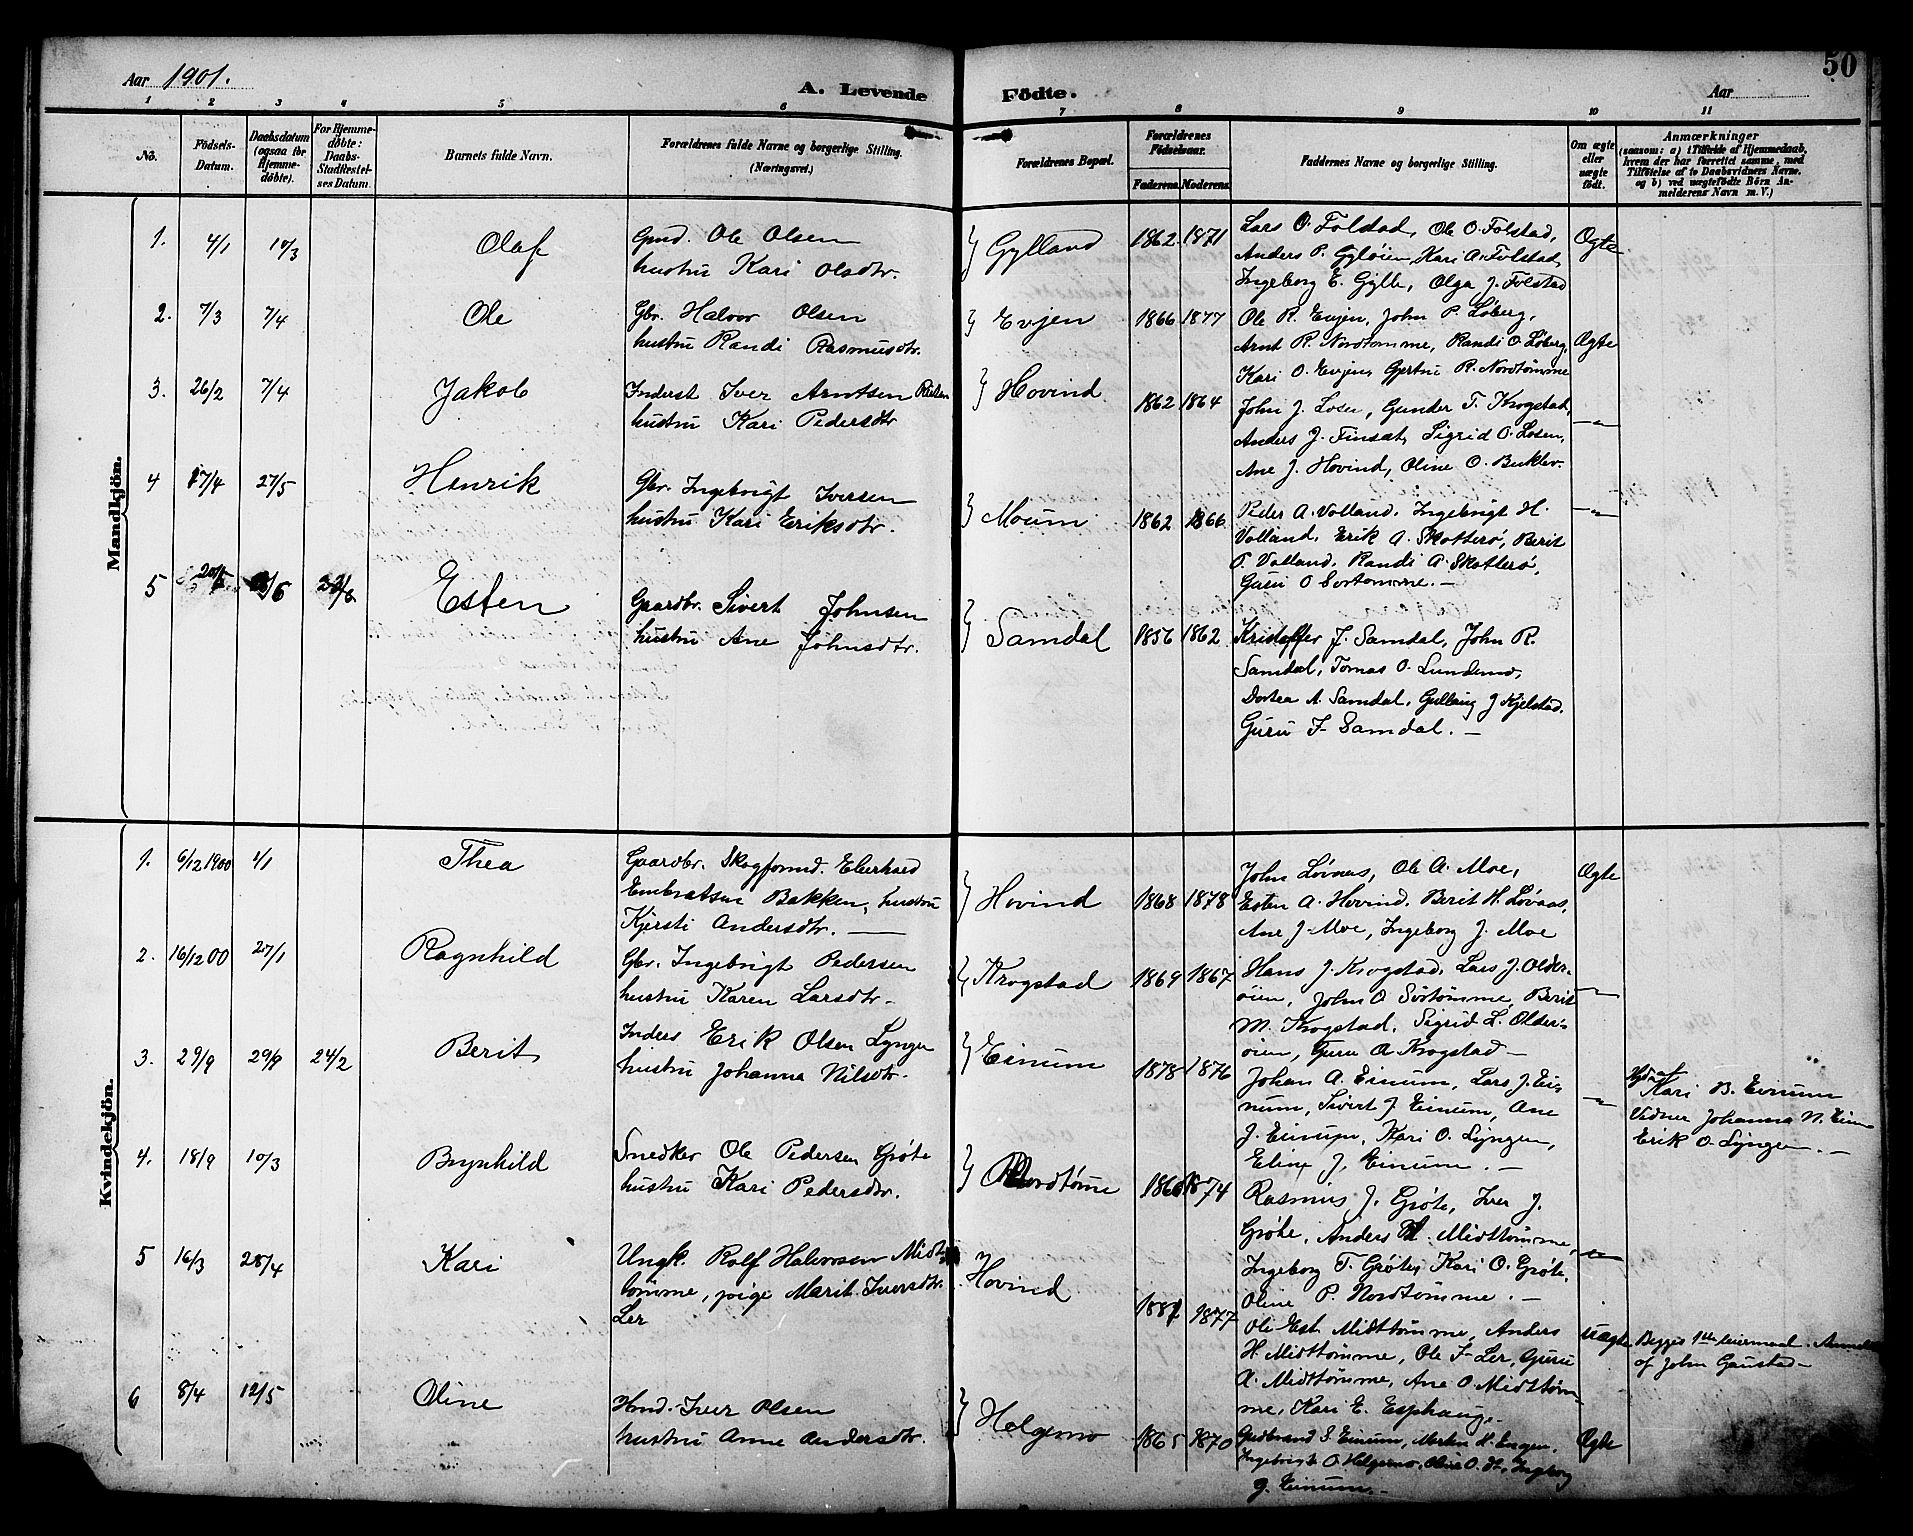 Aar 1901.
A. Levende Födte.
Aar
50
1 2 3 4 5 6 7 8 9 10 11
No.
Födsels-Datum.
Daabsdatum (ogsaa for Hjemme-døbte).
For Hjemme-døbte: Daabs-Stadfæstel-ses Datum.
Barnets fulde Navn.
Forældrenes fulde Navne og borgerlige Stilling.
(Næringsvei.)
Forældrenes Bopæl.
Forældrenes Födselsaar.
Faderens. Moderens.
Faddernes Navne og borgerlige Stilling.
Om ægte eller uægte født.
Anmærkninger
(saasom: a) i Tilfælde af Hjemmedaab,
hvem der har forrettet samme, med
Tilföielse af to Daabsvidners Navne.
og b) ved uægtefödte Börn An-
melderens Navn m. V.)
Mandkjön.
1. 4/1 10/3 Olaf
Gmd. Ole Olsen
hustru Kari Olsdtr.
Gylland 1862 1871
Lars O. Folstad, Ole O. Folstad,
Anders P. Gyløien, Kari A. Folstad,
Ingeborg E. Gylle, Olga J. Folstad
Ægte
2. 7/3 7/4 Ole
Gbr. Halvor Olsen
hustru Randi Rasmusdtr.
Evjen 1866 1877
Ole R. Evjen, John P. Løberg,
Arnt R. Nordtømme, Randi O. Løberg,
Kari O. Evjen, Gjertru R. Nordtømme
Ægte
3. 26/2 7/4 Jakob
Inderst Iver Arntsen
hustru Kari Pedersdtr
Hovind 1862 1864
John J. Losen, Gunder T. Krogstad,
Anders J. Finsæt, Sigrid O. Losen,
Ane J. Hovind, Oline O.
—"—
4 17/4 27/5 Henrik
Gbr. Ingebrigt Iversen
hustru Kari Eriksdtr.
Moum 1862 1866
Peder A. Volland. Ingebrigt H.
Volland. Erik A. Skotterø, Berit
O. Volland. Randi A. Skotterø,
Guru O Sørtømme. —
—"—
5 Esten
Gaardbr. Sivert Johnsen
hustru Ane Johnsdtr.
Samdal 1856 1862
Kristoffer J. Samdal, John R.
Samdal, Tomas O. Lundemo,
Dortea A. Samdal, Gullaug J Kjelstad.
Guru F. Samdal. —
Kvindekjön.
1. 6/12 1900 1/1 Thea
Gaardbr. Skogformd. Eberhard
Embretsen Bakken, hustru
Kjersti Andersdtr. —
Hovind 1868 1878
John Løvaas, Ole A. Moe,
Esten A. Hovind. Berit H. Løvaas,
Ane J. Moe, Ingeborg J. Moe
Ægte
2. 16/12 00 27/1 Ragnhild
Gbr. Ingebrigt Pedersen
hustru Karen Larsdtr.
Krogstad 1869 1867
Hans J. Krogstad, Lars J. Older-
øien, John O Sørtømme, Berit
M. Krogstad. Sigrid L. Older-
øien, Guru A Krogstad —
—"—
3. 29/9 29/9 24/2 Berit
Inders Erik Olsen Lyngen
hustru Johanna Nilsdtr.
Einum 1878 1876
Johan A. Einum, Lars J. Ei-
num, Sivert J. Einum, Ane
J. Einum, Kari O. Lyngen,
Eline J. Einum. —
—"—
Hjd. af
Kari B. Einum
Vidner Johanna N. Einum
Erik O. Lyngen. —
4. 18/9 10/3 Brynhild
Snedker Ole Pedersen Grøte
hustru Kari Pedersdtr.
Nordtømme 1866 1874
Rasmus J. Grøte, Iver J.
Grøte, Anders A. Midttømme,
Ingeborg T. Grøte, Kari O. Grøte,
Oline P. Nordtømme. —
—"—
5 16/3 28/4 Kari
Ungk. Rolf Halvorsen Midt-
tømme, pige Marit Iversdtr.
Ler
Hovind 1881 1877
Ole Est. Midttømme, Anders
H. Midttømme, Ole F. Ler, Guru
A. Midttømme, Ane O. Midttøm-
me, Kari E. Esphaug.
uægte
Begges 1ste leiermaal. Anmeldt
af John Gaustad —
6 8/4 12/5 Oline
Hmd. Iver Olsen
hustru Anne Andersdtr.
Helgemo 1865 1870
Gudbrand S. Einum, Merten H. Engen.
Ingebrigt O. Helgemo, Oline O. dt., Ingeborg
G. Einum. —
Ægte